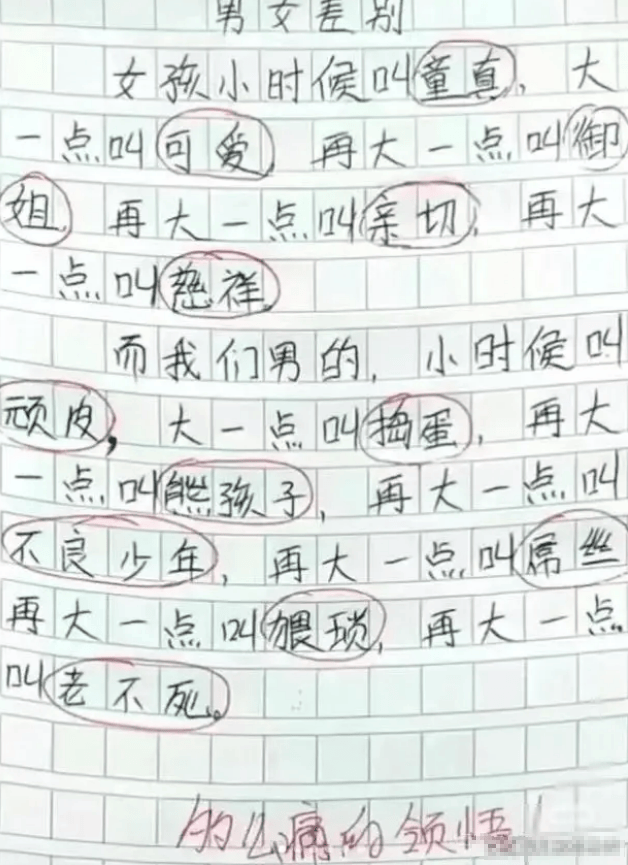 男女差别
女孩小时候叫童真，大
一点叫可爱，再大一点叫御
姐，再大一点叫亲切，再大
一点叫慈祥。
而我们男的，小时候叫
顽皮，大一点叫捣蛋，再大
一点叫熊孩子，再大一点叫
不良少年，再大一点叫屌丝
再大一点叫猥琐，再大一点
叫老不死。
的么痛的领悟！